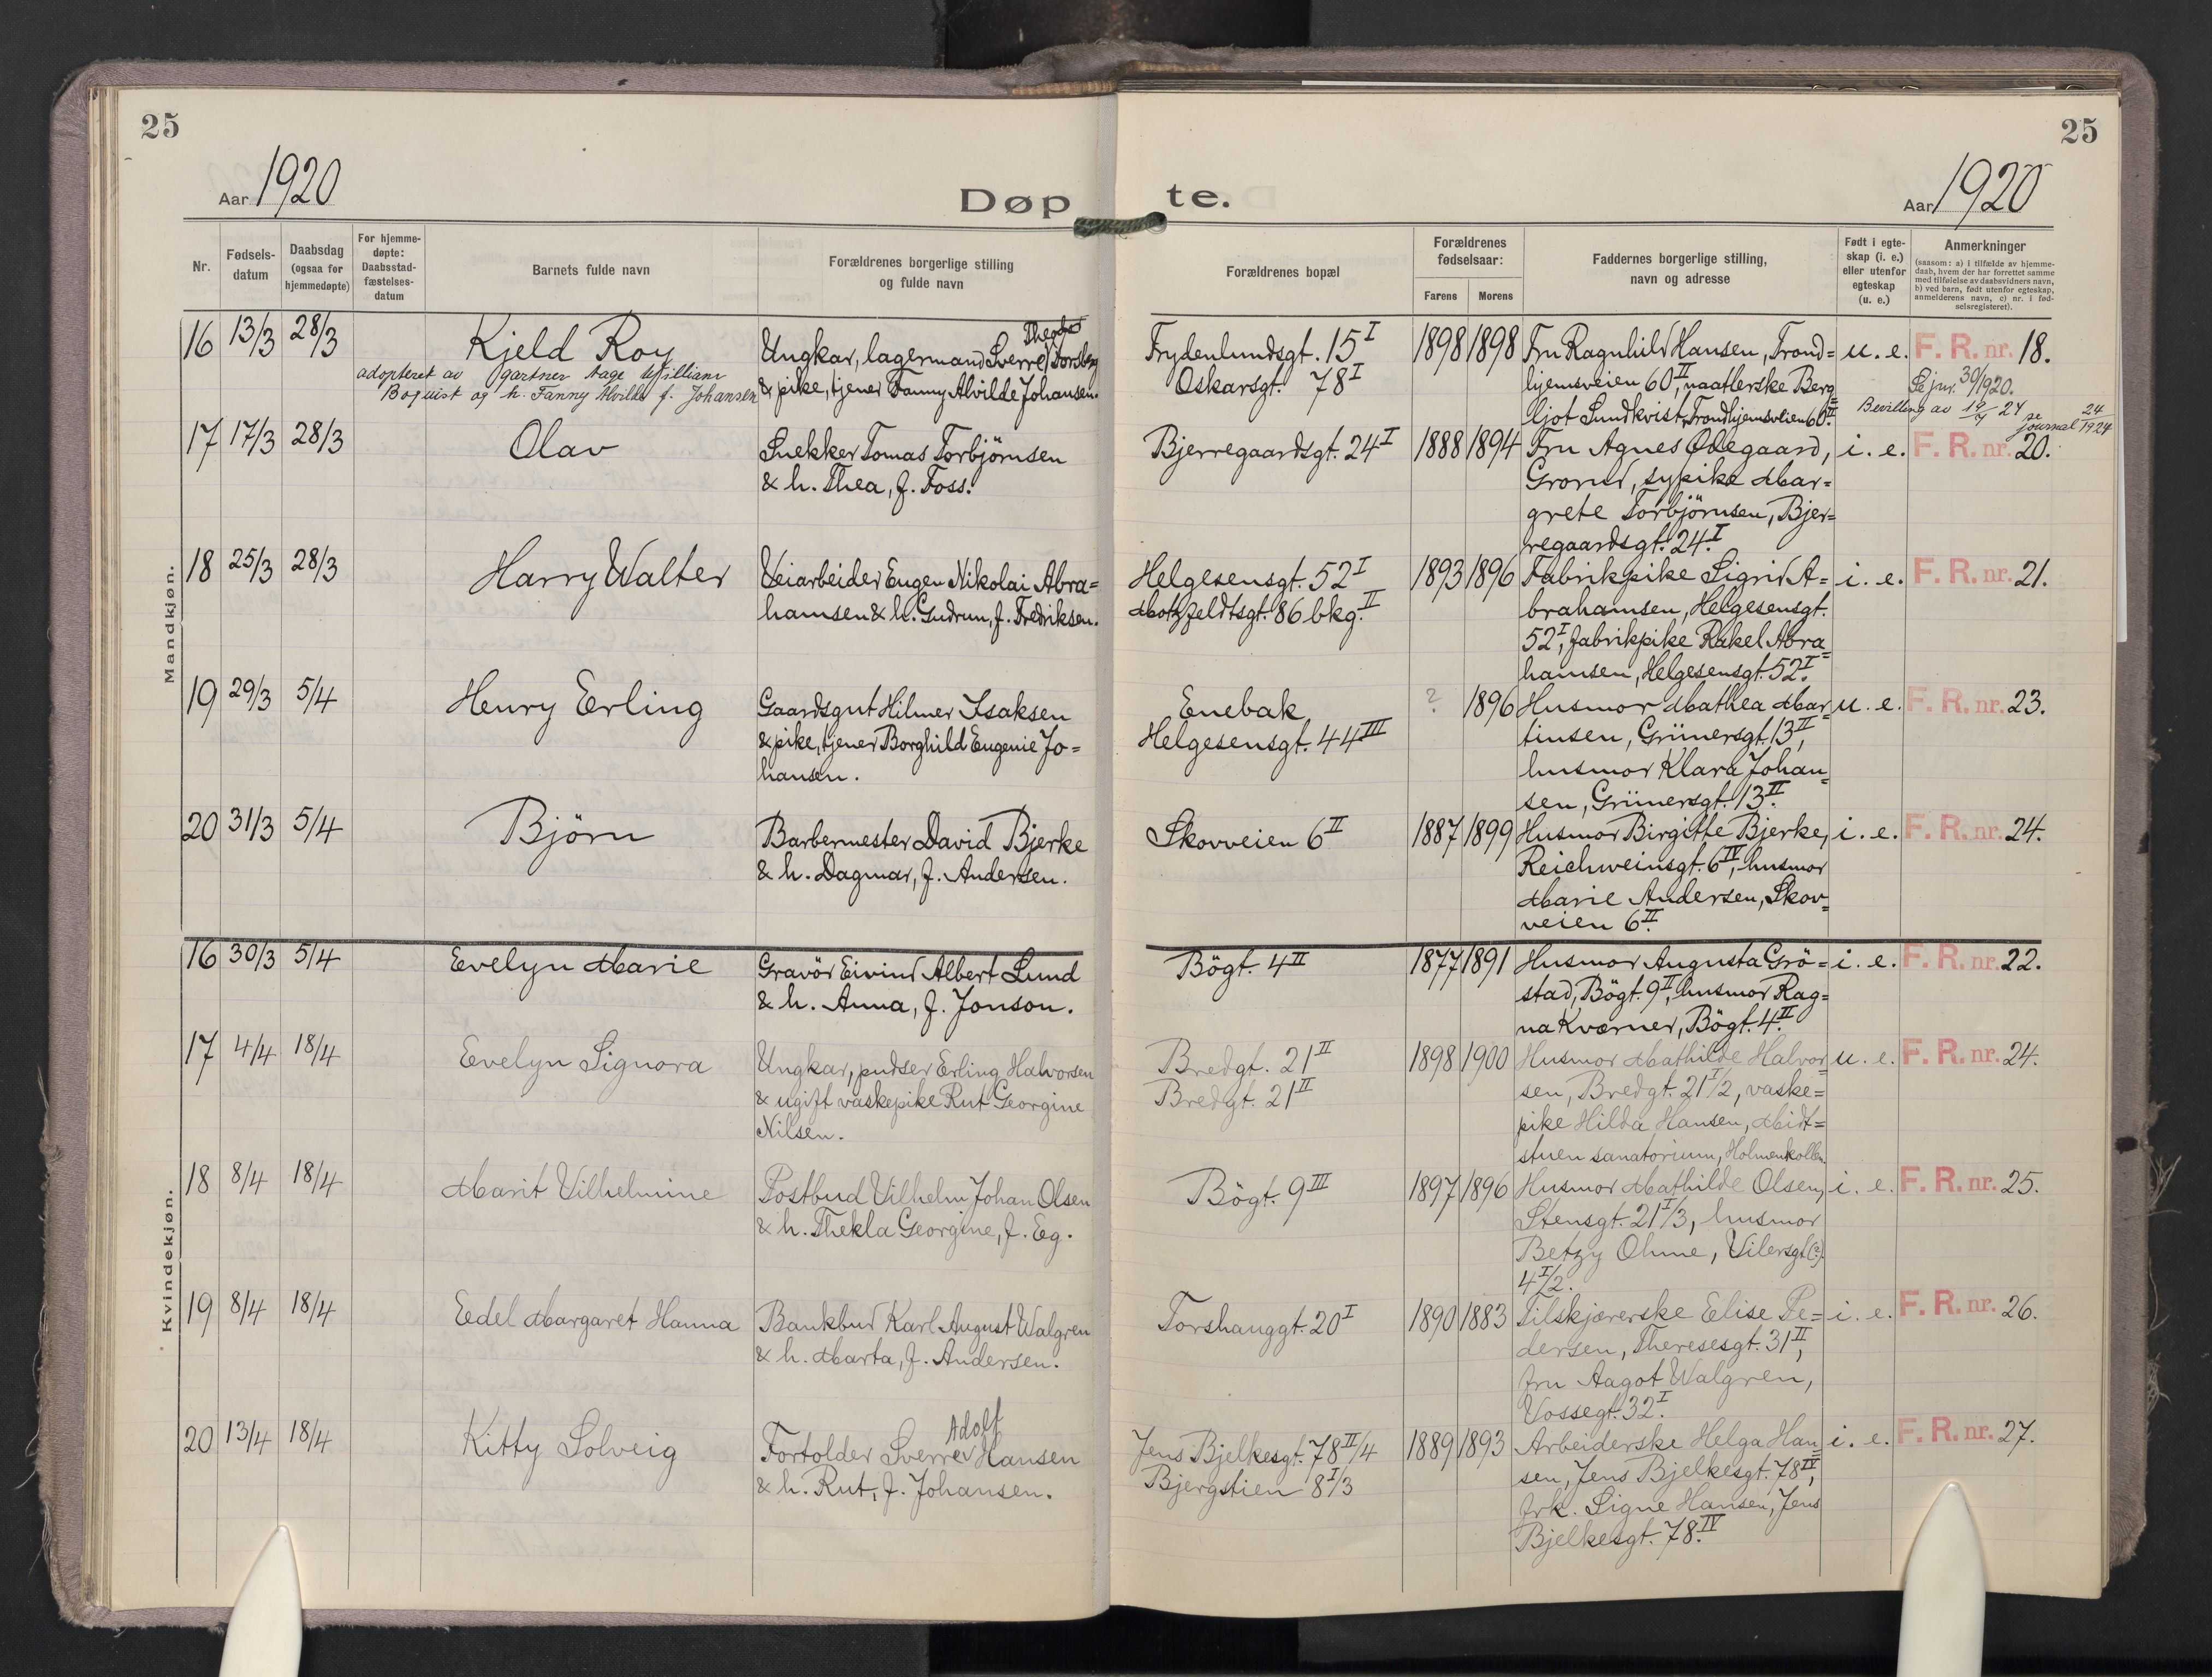 25
25
Aar 1920
Døpte.
Aar 1920
Nr.
Fødsels-
datum
Daabsdag
(ogsaa for
hjemmedøpte)
For hjemme-
døpte:
Daabsstad-
fæstelses-
datum
Barnets fulde navn
Forældrenes borgerlige stilling
og fulde navn
Forældrenes bopæl
Forældrenes
fødselsaar:
Farens
Morens
Faddernes borgerlige stilling,
navn og adresse
Født i egte-
skap (i. e.)
eller utenfor
egteskap
(u. e.)
Anmerkninger
(saasom: a) i tilfælde av hjemme-
daab, hvem der har forrettet samme
med tilføielse av daabsvidners navn,
b) ved barn, født utenfor egteskap,
anmelderens navn, c) nr. i fød-
selsregisteret).
Mandkjøn.
16 13/3 28/3 Kjeld Roy
adopteret av gartner Aage William
Boquist og h. Fanny Alvilde f. Johansen
Theodor
Ungkar, lagermand Sverre Torsberg
& pike, tjener Fanny Alvilde Johansen.
Frydenlundsgt. 15 I
Oskarsgt. 78 I
1898 1898
Fru Ragnhild Hansen, Trond=
hjemsveien 60 II, naatlerske Berg=
ljot Lundkvist, Trondhjemsveien 60 II.
u. e. F. R. nr. 18.
Se jnr. 30/1920.
Bevilling av 19/4 24 se journal 24/1924
17 17/3 28/3 Olav
Snekker Tomas Torbjörnsen
& h. Thea, f. Foss.
Bjerregaardsgt. 24 I
1888 1894
Fru Agnes Ödegaard,
Grorud, sypike Mar=
grete Torbjörnsen, Bjer=
regaardsgt. 24 I.
i. e. F. R. nr. 20.
18 25/3 28/3 Harry Walter
Veiarbeider Eugen Nikolai Abra=
hamsen & h. Gudrun, f. Fredriksen.
Helgesensgt. 52 I
Motzfeldtsgt. 86 bkg. II
1893 1896
Fabrikpike Sigrid A=
brahamsen, Helgesensgt.
52 I, fabrikpike Rakel Abra=
hamsen, Helgesensgt. 52 I.
i. e. F. R. nr. 21.
19 29/3 5/4 Henry Erling
Gaardsgut Hilmer Isaksen
& pike, tjener Borghild Eugenie Jo=
hansen.
Enebak
Helgesensgt. 44 III
? 1896
Husmor Mathea Mar=
tinsen, Grünersgt. 13 II,
husmor Klara Johan=
sen, Grünersgt. 13 II.
u. e. F. R. nr. 23.
20 31/3 5/4 Björn
Barbermester David Bjerke
& h. Dagmar, f. Andersen.
Skovveien 6 II
1887 1899
Husmor Birgitte Bjerke,
Reichweinsgt. 6 IV, husmor
Marie Andersen, Skov=
veien 6 II.
i. e. F. R. nr. 24.
Kvindekjøn.
16 30/3 5/4 Evelyn Marie
Gravör Eivind Albert Lund
& h. Anna, f. Jonson.
Bögt. 4 II
1877 1891
Husmor Augusta Grö=
stad, Bögt. 9 II, husmor Rag=
na Kværner, Bögt. 4 II.
i. e. F. R. nr. 22.
17 4/4 18/4 Evelyn Signora
Ungkar, pudser Erling Halvorsen
& ugift vaskepike Rut Georgine
Nilsen.
Bredgt. 21 II
Bredgt. 21 II
1898 1900
Husmor Mathilde Halvor=
sen, Bredgt. 21 I/2, vaske=
pike Hilda Hansen, Midt=
stuen sanatorium, Holmenkollen.
u. e. F. R. nr. 24.
18 8/4 18/4 Marit Vilhelmine
Postbud Vilhelm Johan Olsen
& h. Thekla Georgine, f. Eg.
Bögt. 9 III
1897 1896
Husmor Mathilde Olsen,
Stensgt. 21 I/3, husmor
Betzy Ohme, Vilersgt. (?)
4 I/2.
i. e. F. R. nr. 25.
19 8/4 18/4 Eedel Margaret Hanna
Bankbud Karl August Walgren
& h. Marta, f. Andersen.
Torshauggt. 20 I
1890 1883
Tilskjærerske Elise Pe=
dersen, Theresesgt. 31 II,
fru Aagot Walgren,
Vossegt. 32 I.
i. e. F. R. nr. 26.
20 13/4 18/4 Kitty Solveig
Adolf
Fortolder Sverre Hansen
& h. Rut, f. Johansen.
Jens Bjelkesgt. 78 II/4
Bjergstien 8 I/3
1889 1893
Arbeiderske Helga Han=
sen, Jens Bjelkesgt. 78 IV,
frk. Signe Hansen, Jens
Bjelkesgt. 78 IV.
i. e. F. R. nr. 27.